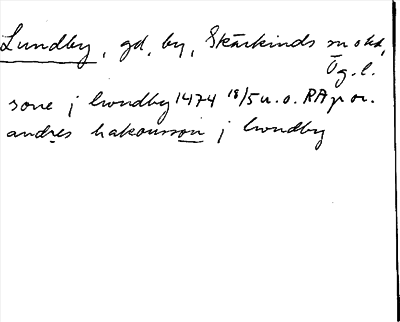 Lundby, gd, by, Skärkinds sn o hd,
Ög. l.
sone j lwndby 1474 18/5 u. o. RAp or.
andres hakonsson j lwndby